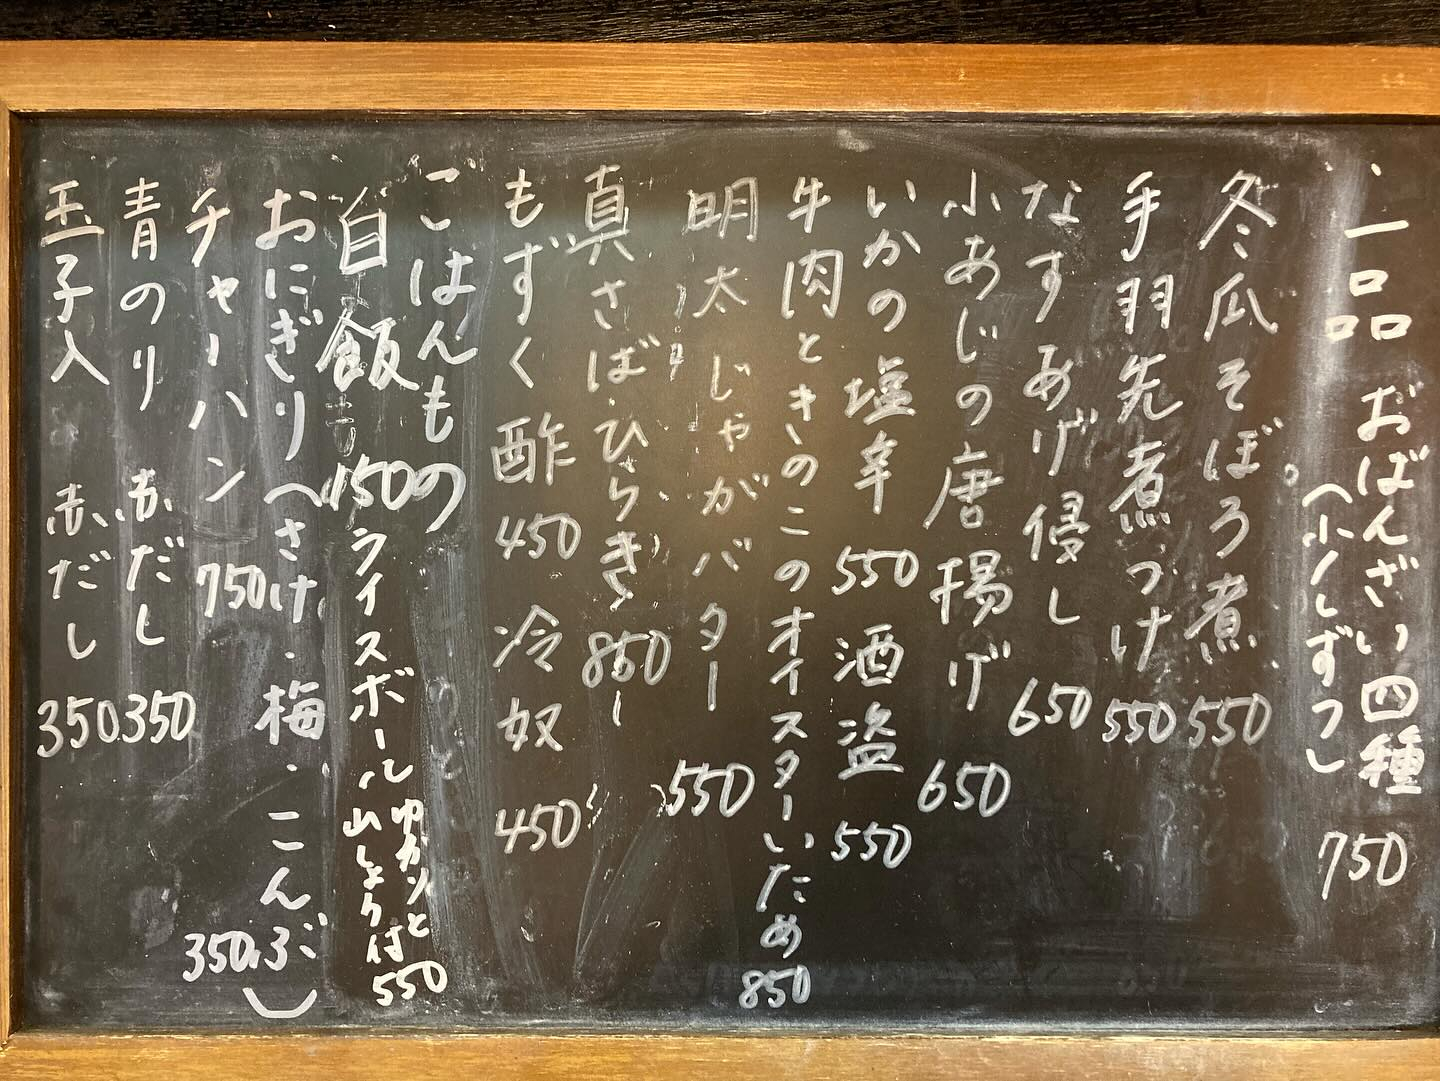 一品 おばんざい四種 750
(少しずつ)
冬瓜そぼろ煮 550
手羽先煮つけ 550
なすあげ浸し 650
小あじの唐揚げ 650
いかの塩辛 550 酒盗 550
牛肉ときのこのオイスターいため 850
明太じゃがバター 550
真さばひらき 850
もずく酢 450 冷奴 450
ごはんもの
白飯 150 ライスボール ゆかりと山しょう付 550
おにぎり(さけ・梅・こんぶ) 350
チャーハン 750
青のり 赤だし 350
玉子入 赤だし 350